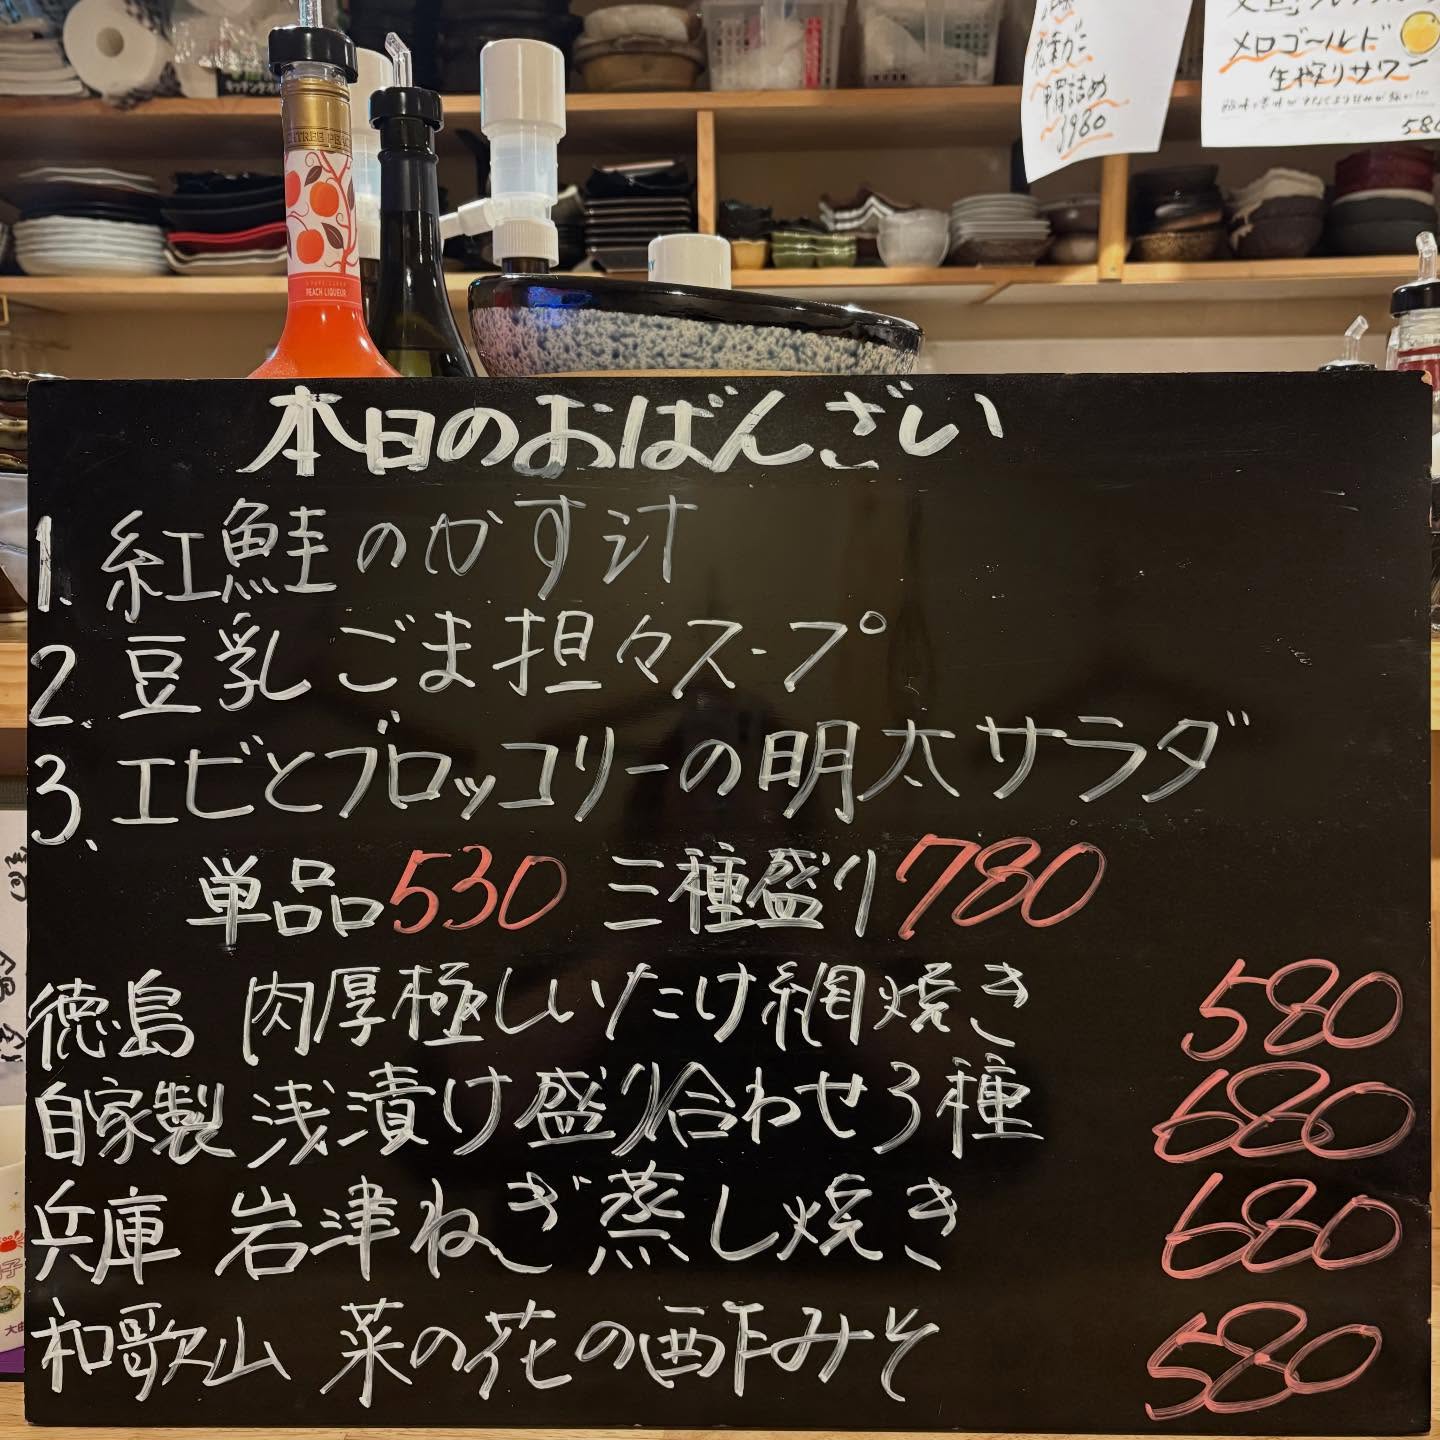 メロゴールド
生搾りサワー
580
甲羅詰め
1980
PEACH LIQUEUR
本日のおばんざい
1. 紅鮭のかす汁
2. 豆乳ごま担々スープ
3、エビとブロッコリーの明太サラダ
単品530 三種盛り780
徳島 肉厚極しいたけ網焼き 580
自家製 浅漬け盛り合わせ3種 680
兵庫 岩津ねぎ蒸し焼き 680
和歌山 菜の花の酢みそ 580